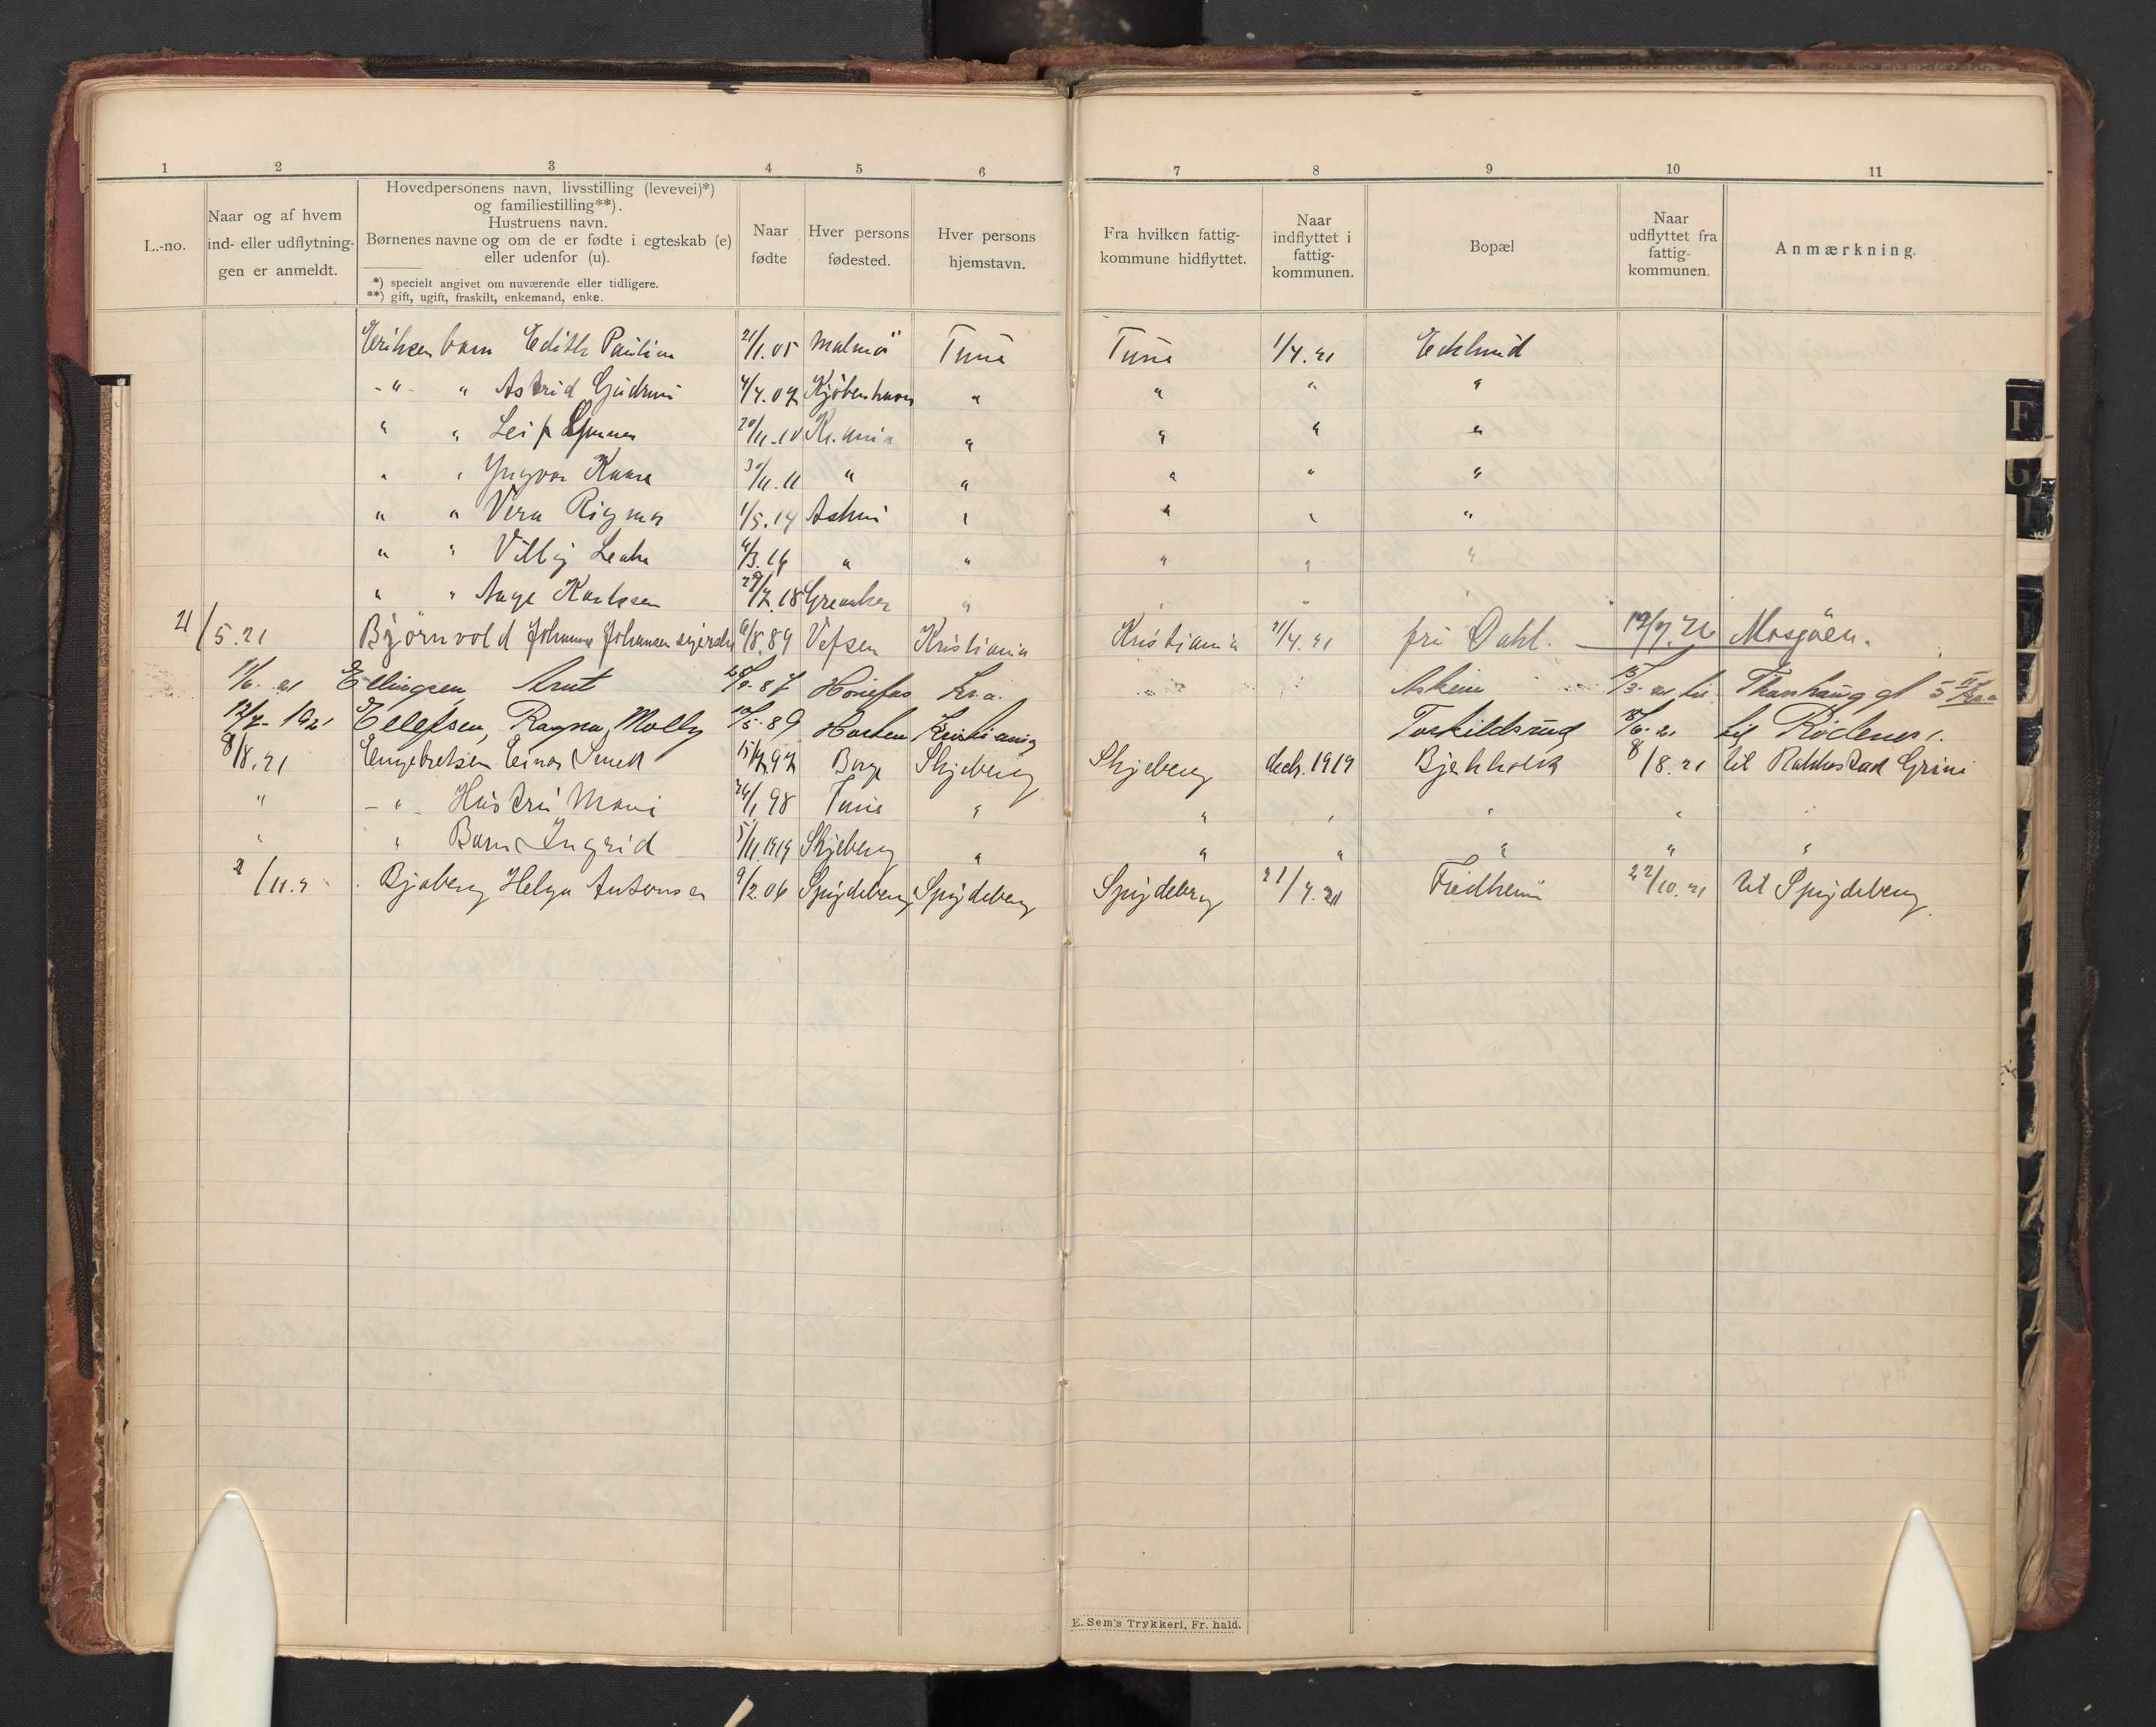 1 2 3 4 5 6 7 8 9 10 11
L.-no.
Naar og af hvem
ind- eller udflytnin-
gen er anmeldt.
Hovedpersonens navn, livsstilling (levevei)*)
og familiestilling**).
Hustruens navn.
Børnenes navne og om de er fødte i egteskab (e)
eller udenfor (u).
*) specielt angivet om nuværende eller tidligere.
**) gift, ugift, fraskilt, enkemand, enke.
Naar
fødte
Hver persons
fødested.
Hver persons
hjemstavn.
Fra hvilken fattig-
kommune hidflyttet.
Naar
indflyttet i
fattig-
kommunen.
Bopæl
Naar
udflyttet fra
fattig-
kommunen.
Anmærkning.
Eriksen barn Edith Paulina 21/1.05 Malmö Tune Tune 1/4.21 Eklund
-"- " Astrid Gudrun 4/4.07 Kjöbenhavn " " " "
" " Leif Gunnar 20/11-10 Kr.ania " " " "
" " Yngvar Kaare 30/11.11 " " " " "
" " Vera Rigmor 1/5.14 Askim " " " "
" " Villy 4/3.16 " " " " "
" " Aage Karlsen 29/7.18 Greaaker " " "
21/5.21 Björnvold Johanne Johansen 6/8.89 Vefsen Kristiania Kristiania 21/4.21 fru Dahl. 19/7.26 Mosjöen.
11/6. 21 Ellingsen, Arut 28/9-87 Hönefos Kr.a. Askim 15/3-21 til
12/7-1921 Ellefsen, Ragna Molly 10/5-89 Horten Kristiania Torkildsrud 15/6-21 til Rödenes.
8/8.21 Engebretsen Einar Smed 15/12.97 Borge Skjeberg Skjeberg decbr. 1919 8/8.21 til Rakkestad Grini
" -"- Hustru Marie 24/1 98 Tune " " " " " "
" " Barn Ingrid 5/11.1919 Skjeberg " " " " " "
2/11.21 Bjaberg Helga Antonsen 9/2.06 Spydeberg Spydeberg Spydeberg 21/4.21 Fredheim 22/10.21 til Spydeberg.
E. Sem's Trykkeri, Fr. hald.
F
G